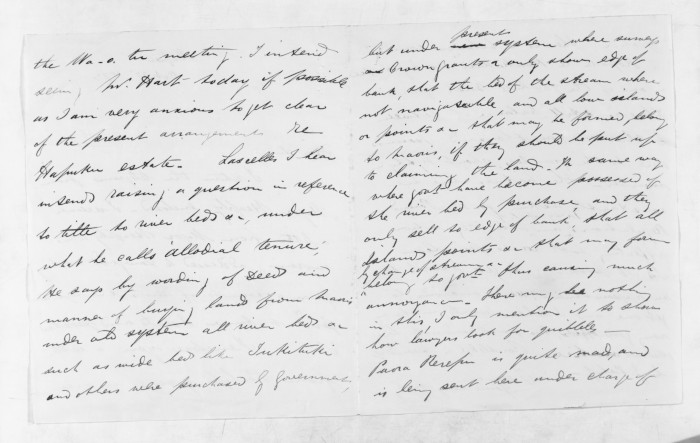 the Wa-o. the meeting. I intend
seeing Mr. Hart today if possible
as I am very anxious to get clear
of the present arrangements re
Hapuku estate - Lascelles I hear
intends raising a question in reference
to title to river beds &c, under
what he calls 'allodial tenure',
He says by wording of Deed and
manner of buying lands from maoris
under old system all river beds &c
such as wide bed like Tukituki
and others were purchased by Government,
but under present system where surveys
as Crown grants &c only shown edge of
bank that the bed of the stream where
not navigable, and all low islands
or points &c that may be formed, belong
to maoris, if they should be put up
to claiming the land. In same way
where govt have become possessed of
the river bed by purchase, and they
only sell to edge of bank that all
Islands points &c that may form
by change of stream &c
belong to govt thus causing much
annoyance - There may be nothing
in this, I only mention it to show
how lawyers look for quibbles -
Paora Rerepu is quite mad, and
is being sent here under charge of